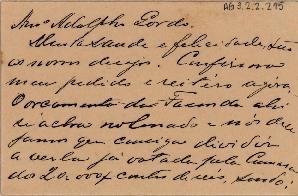 AG 3.2.2.195
Am.º Adolpho Gordo.
Muita saude e felicidade, são
os nossos desejos. Confirmo o
meu pedido e reitero agora,
O orçamento da Fazenda ahi
se acha no Senado e nós dese
jamos que consiga dividir
a verba já votada pela Camara
dos 20:000$ contos de reis, sendo